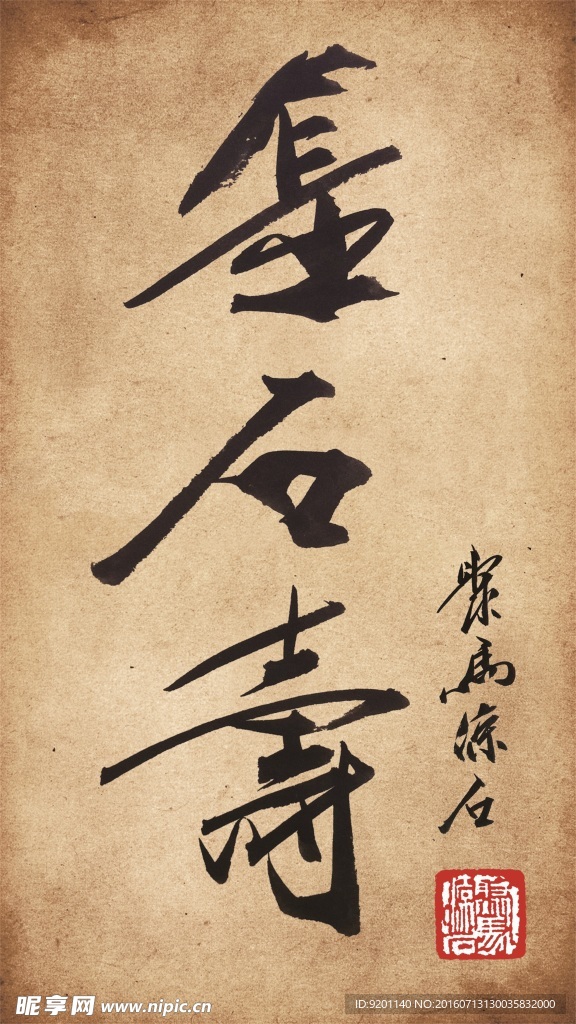 金石壽
聚馬涼石
昵享网 www.nipic.cn
ID:9201140 NO:20160713130035832000